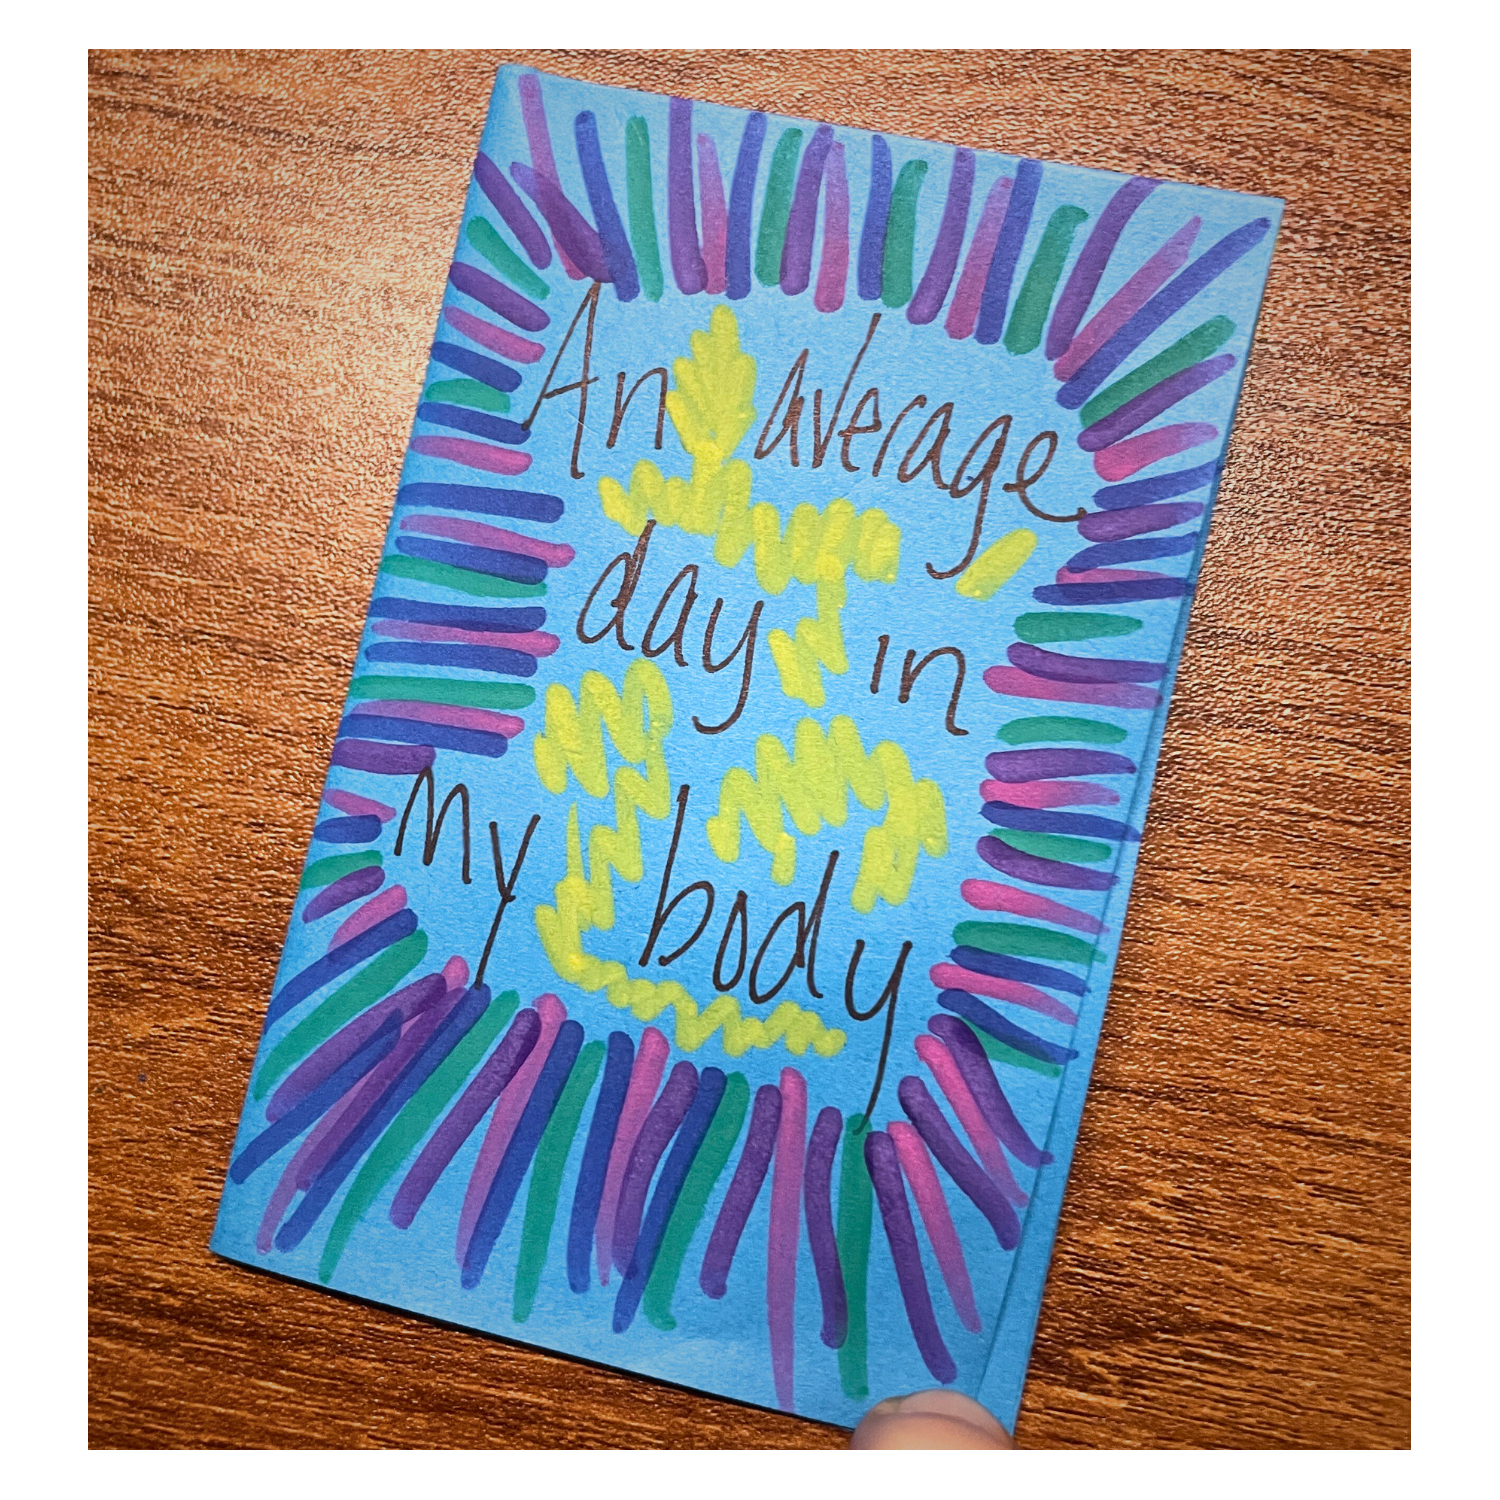 An average
day in
my body